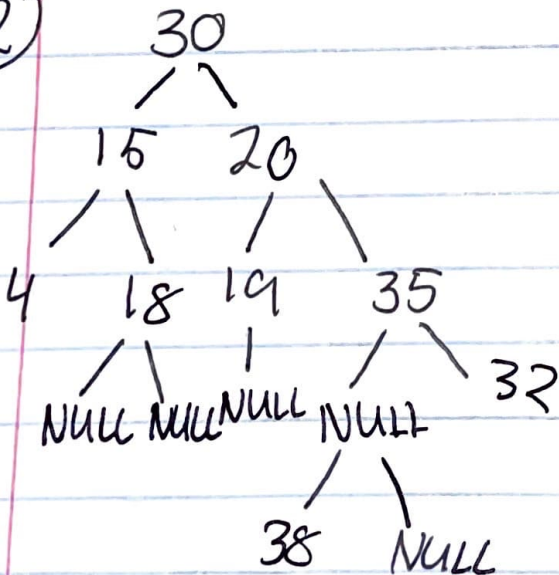 2
30
15 20
4 18 19 35
NULL NULL NULL NULL 32
38 NULL